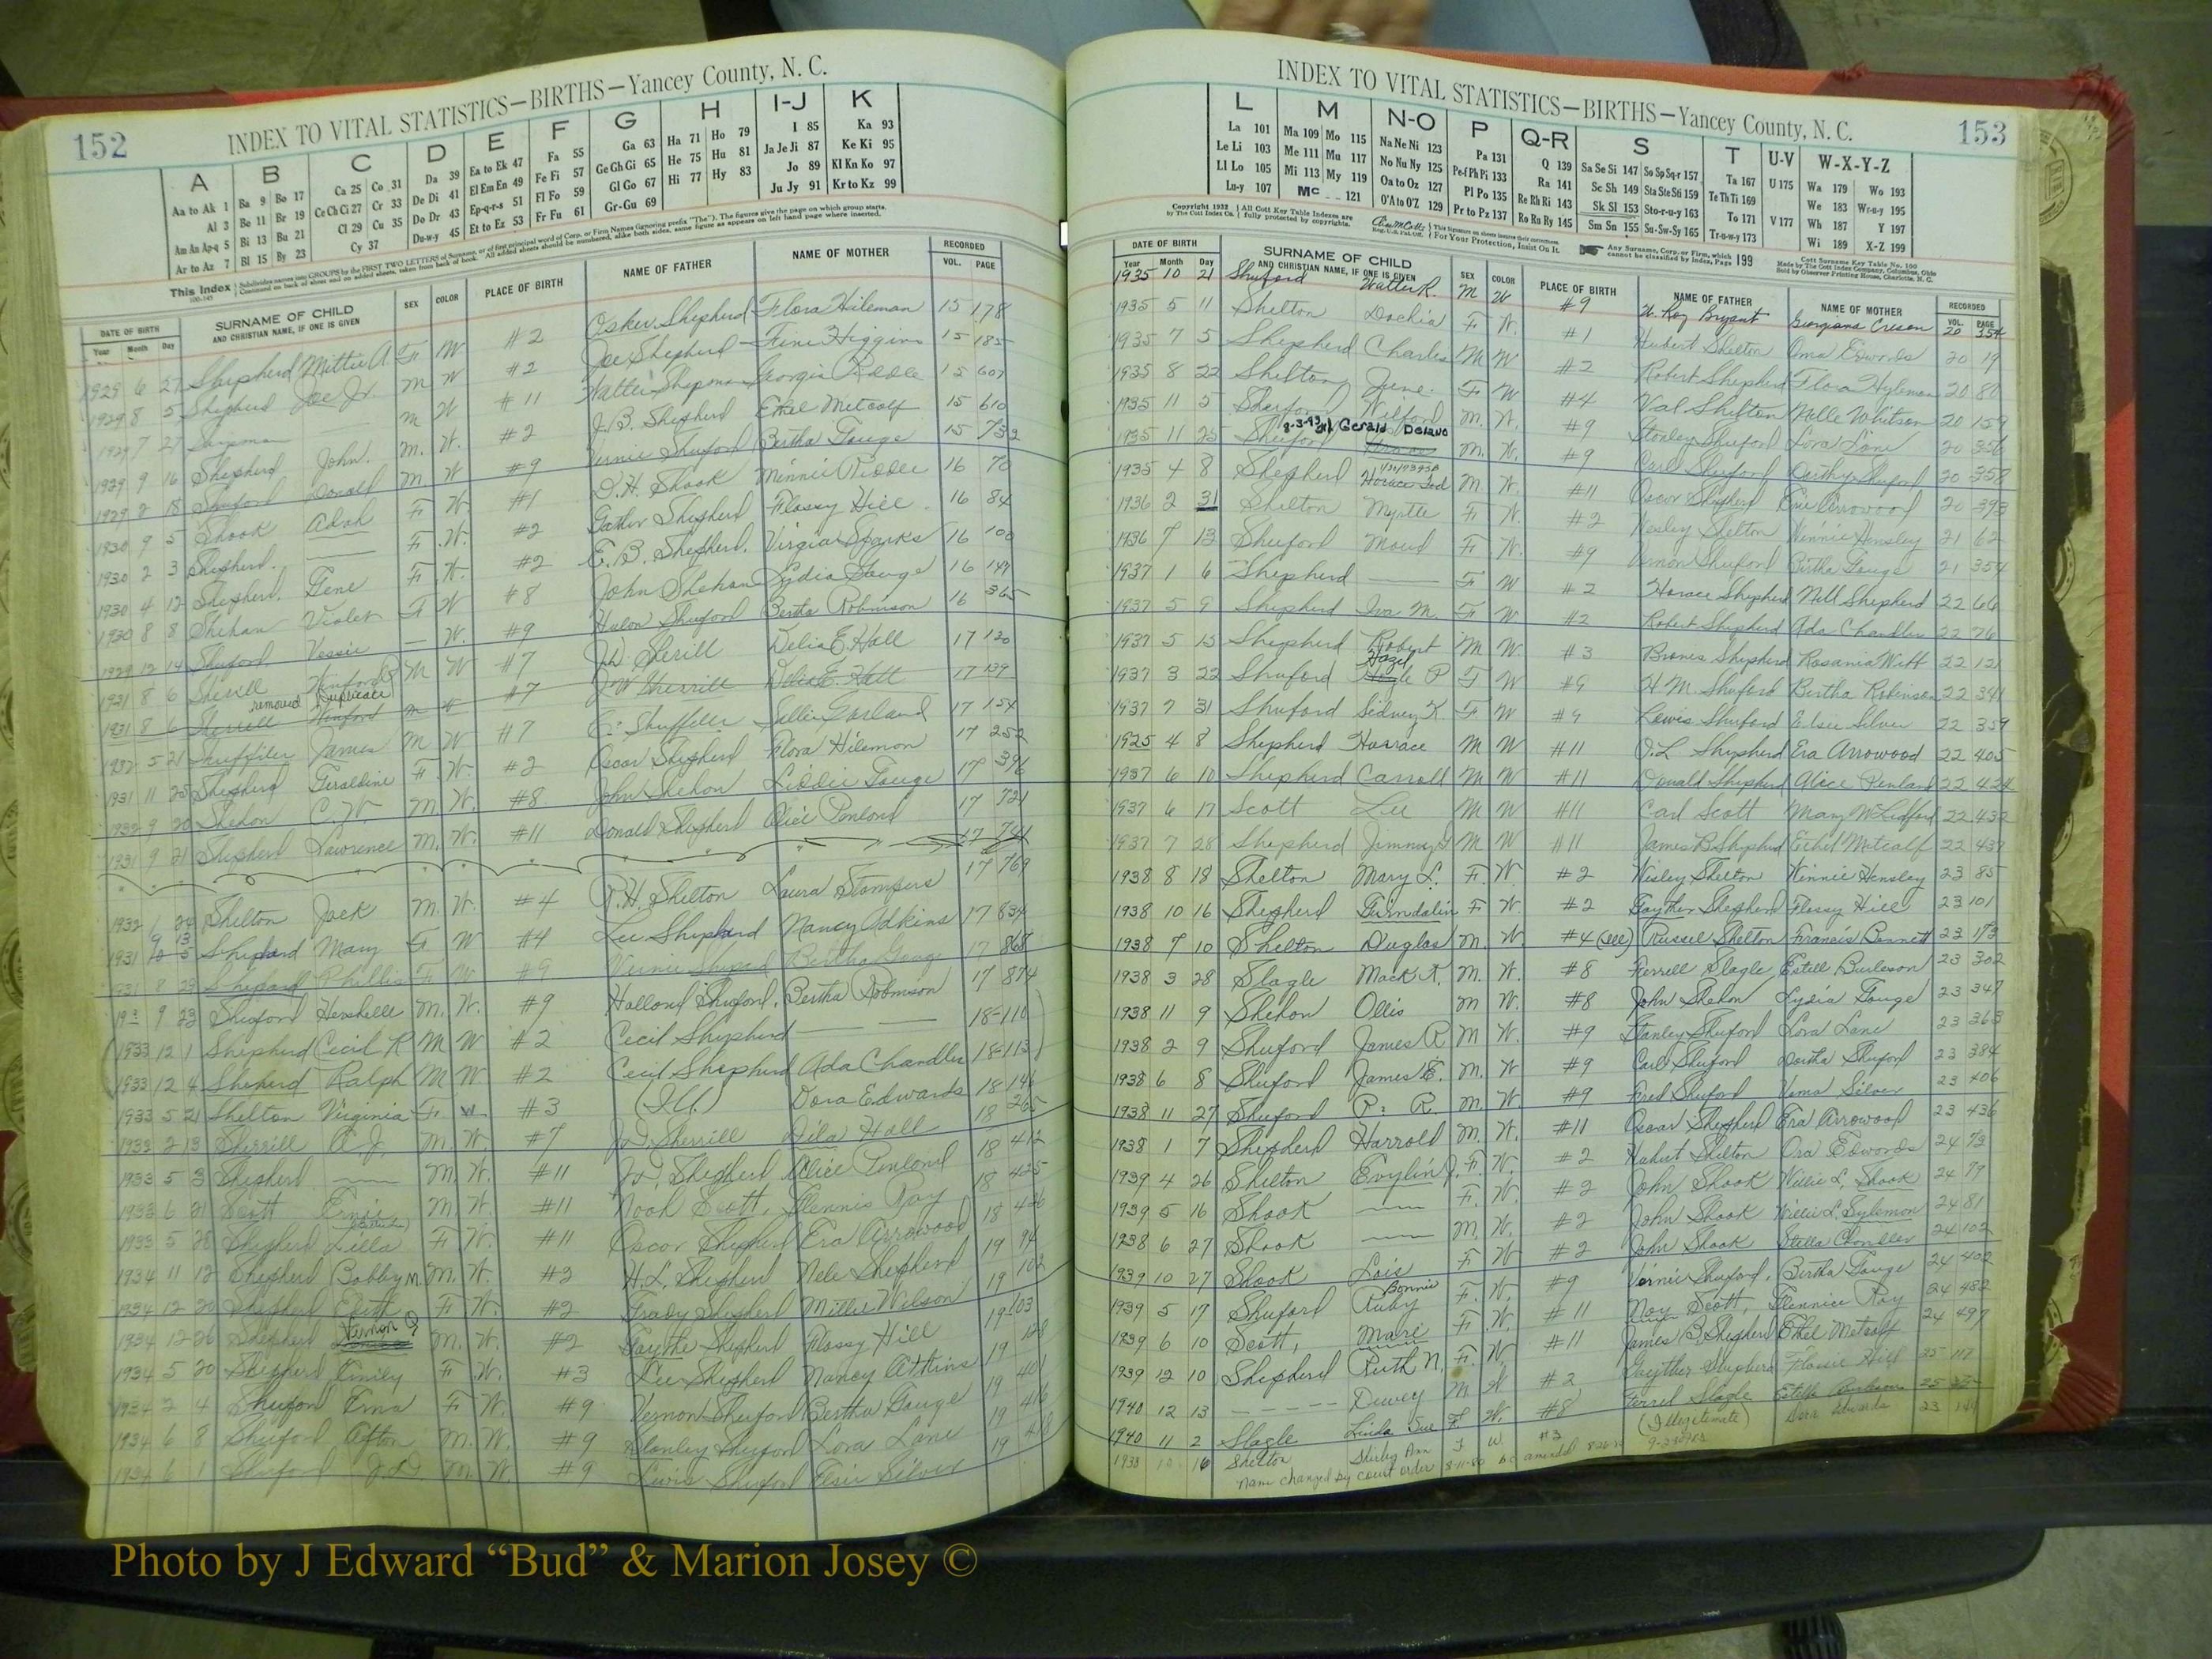 152
INDEX TO VITAL STATISTICS—BIRTHS—Yancey County, N. C.
A B C D E F G H I-J K
Aa to Ak 1 Ba 9 Bo 17 Ca 25 Co 31 Da 39 Ea to Ek 47 Fa 55 Ga 63 Ha 71 Ho 79 I 85 Ka 93
Al 3 Be 11 Br 19 Ce Ch Ci 27 Cr 33 De Di 41 El Em En 49 Fe Fi 57 Ge Gh Gi 65 He 75 Hu 81 Ja Je Ji 87 Ke Ki 95
Am An Ap-q 5 Bi 13 Bu 21 Cl 29 Cu 35 Do Dr 43 Ep-q-r-s 51 Fl Fo 59 Gl Go 67 Hi 77 Hy 83 Jo 89 Kl Kn Ko 97
Ar to Az 7 Bl 15 By 23 Cy 37 Du-w-y 45 Et to Ez 53 Fr Fu 61 Gr-Gu 69 Ju Jy 91 Kr to Kz 99
This Index
DATE OF BIRTH SURNAME OF CHILD AND CHRISTIAN NAME, IF ONE IS GIVEN SEX COLOR PLACE OF BIRTH NAME OF FATHER NAME OF MOTHER RECORDED
Year Month Day VOL. PAGE
1929 6 27 Shepherd Mittie A F W #2 Osker Shepherd Flora Hileman 15 178
1929 8 5 Shepherd Joe Jr. M W #2 Joe Shepherd Higgins 15 185
1929 7 27 M W #11 Georgia Riddle 15 607
1929 9 16 Shepherd John. M. W. #2 J.B. Shepherd Ethel Metcalf 15 610
1929 2 18 Shuford Donald M W #9 Vernie Shuford Bertha Gouge 15 732
1930 9 5 Shook Adah F W #1 D.H. Shook Minnie Riddle 16 70
1930 2 3 Shepherd. —— F. W. #2 Gather Shepherd Flossy Hill 16 84
1930 4 12 Shepherd, Gene F W. #2 E.B. Shepherd. Virgia Sparks 16 100
1930 8 8 Shehan Violet F W #8 John Shehan Lydia Gouge 16 149
1929 12 14 Shuford Vessie — W. #9 Shuford Bertha Robinson 16 365
1931 8 6 Sherill Winford M W #7 J.D. Sherill Delia E. Hall 17 120
removed Duplicate
1931 8 6 Winford M W #7 J W Sherrill Delia E. Hall 17 139
1932 5 21 Shuffiler James M W #7 Shuffiler Sallie Garland 17 154
1931 11 25 Shepherd Geraldine F. W. #2 Oscar Shepherd Flora Hilemon 17 252
1932 9 20 Shehon C. W. M. W. #8 John Shehon Liddie Gouge 17 396
1931 9 21 Shepherd Lawrence M. W. #11 Donald Shepherd Alice Penlond 17 721
17 741
17 769
1932 1 24 Shelton Jack M. W. #4 R.H. Shelton Laura Stampers
1931 Shepard Mary F W #4 Lee Shepard Nancy Adkins 17 834
1931 8 23 Shepard Phillis F W #9 Bertha Gouge 17 868
9 23 Shuford Hershelle M. W. #9 Hallond Shuford, Bertha Robinson 17 874
1933 12 1 Shepherd Cecil R M W #2 Cecil Shepherd —— 18-110
1933 12 4 Sheherd Ralph M W. #2 Cecil Shepherd Ada Chandler 18-113
1933 5 21 Shelton Virginia F W #3 Dora Edwards 18 146
1933 2 13 Sherrill M. W. #7 J.D. Sherrill Dila Hall 18 265
1933 5 3 Shepherd —— M. W. #11 Shepherd Alice Penlond 18 412
1933 6 21 Scott Ernie M W. #11 Noah Scott, Glennis Ray 18 425
1933 5 28 Shepherd Lilla F W. #11 Oscar Shepherd Era Arrowood 18 426
1934 11 12 Shepherd Bobby M. M. W. #2 H.L. Shepherd Nele Shepherd 19 94
1934 12 20 Shepherd Edith F W. #2 Grady Shepherd Mittie Wilson 19 102
1934 12 26 Shepherd Vernon M. W. #2 Gaythe Shepherd Flossy Hill 19 103
1934 5 20 Shepherd Emily F W. #3 Lee Shepherd Nancy Atkins 19 128
1934 2 4 Shuford Erma F W. #9 Vernon Shuford Bertha Gouge 19 401
1934 6 8 Shuford Afton M. W. #9 Stanley Shuford Lora Lane 19 416
1934 6 1 Shuford M. W. #9 Lewis Shuford Elsie Silver 19 418
INDEX TO VITAL STATISTICS—BIRTHS—Yancey County, N. C.
153
L M N-O P Q-R S T U-V W-X-Y-Z
La 101 Ma 109 Mo 115 Na Ne Ni 123 Pa 131 Q 139 Sa Se Si 147 So Sp Sq-r 157 Ta 167 U 175 Wa 179 Wo 193
Le Li 103 Me 111 Mu 117 No Nu Ny 125 Pe-f Ph Pi 133 Ra 141 Sc Sh 149 Sta Ste Sti 159 Te Th Ti 169 We 183 Wr-u-y 195
Ll Lo 105 Mi 113 My 119 Oa to Oz 127 Pl Po 135 Re Rh Ri 143 Sk Sl 153 Sto-r-u-y 163 To 171 V 177 Wh 187 Y 197
Lu-y 107 Mc 121 O'A to O'Z 129 Pr to Pz 137 Ro Ru Ry 145 Sm Sn 155 Su-Sw-Sy 165 Tr-u-w-y 173 Wi 189 X-Z 199
Copyright 1932 by The Cott Index Co. All Cott Key Table Indexes are fully protected by copyrights. For Your Protection, Insist On It. Any Surname, Corp. or Firm, which cannot be classified by Index, Page 199 Cott Surname Key Table No. 100 Made by The Cott Index Company, Columbus, Ohio Sold by Observer Printing House, Charlotte, N. C.
DATE OF BIRTH SURNAME OF CHILD AND CHRISTIAN NAME, IF ONE IS GIVEN SEX COLOR PLACE OF BIRTH NAME OF FATHER NAME OF MOTHER RECORDED
Year Month Day VOL. PAGE
1935 10 21 Shuford Walter R. M W #9 W. Roy Bryant Georgiana Creson 20 354
1935 5 11 Shelton Dochia F W. #1 Hubert Shelton Oma Edwords 20 19
1935 7 5 Shepherd Charles M W #2 Robert Shepherd Flora Hyleman 20 80
1935 8 22 Shelton June F W #4 Val Shelton Nelle Whitson 20 159
1935 11 2 Shuford Wilford M. W. #9 Stanley Shuford Lora Lane 20 356
8-3-93 Gerald Delano
1935 11 25 Shuford M. W. #9 Carl Shuford Dorthy Shuford 20 358
1935 4 8 Shepherd Horace Ted M W. #11 Oscar Shepherd Era Arrowood 20 393
1936 2 31 Shelton Myrtle F W. #2 Wesley Shelton Winnie Hensley 21 62
1936 7 13 Shuford Maud F W. #9 Vernon Shuford Birtha Gouge 21 354
1937 1 6 Shepherd —— F W #2 Horace Shepherd Nell Shepherd 22 66
1937 5 9 Shepherd Iva M. F W #2 Robert Shepherd Ada Chandler 22 76
1937 5 15 Shepherd Robert M W. #3 Shepherd Rosania Witt 22 121
1937 3 22 Shuford Hazel P F W #9 H.M. Shuford Bertha Robinson 22 341
1937 7 31 Shuford Sidney K. F W #9 Lewis Shuford Elsie Silver 22 359
1925 4 8 Shepherd Horrace M W #11 O.L Shepherd Era Arrowood 22 405
1937 6 10 Shepherd Carroll M W #11 Donald Shepherd Alice Penland 22 424
1937 6 17 Scott Lee M W #11 Carl Scott Mary McLedford 22 432
1937 7 28 Shepherd Jimmy M W #11 James B Shepherd Ethel Metcalf 22 437
1938 8 18 Shelton Mary L. F. W. #2 Wisley Shelton Winnie Hensley 23 85
1938 10 16 Shepherd Gwindalin F W. #2 Gayther Shepherd Flossy Hill 23 101
1938 7 10 Shelton Duglas M. W #4 (ill) Russel Shelton Francis Bennett 23 173
1938 3 28 Slagle Mack A. M. W. #8 Ferrell Slagle Estell Burleson 23 302
1938 11 9 Shehon Ollis M W. #8 John Shehon Lydia Gouge 23 347
1938 2 9 Shuford James R M W. #9 Stanley Shuford Lora Lane 23 363
1938 6 8 Shuford James E. M. W. #9 Carl Shuford Dortha Shuford 23 384
1938 11 27 Shuford P. R. M. W. #9 Fred Shuford Silver 23 406
1938 1 7 Shepherd Harrold M. W. #11 Oscar Shepherd Era Arrowood 23 436
1939 4 26 Shelton Evylin J. F. W. #2 Hubert Shelton Ora Edwords 24 73
1939 5 16 Shook —— F. W. #2 John Shook Willie L. Shook 24 79
1938 6 27 Shook —— M. W. #2 John Shook Willie L. Sylemon 24 81
1939 10 27 Shook Lois F W #2 John Shook Stella Chandler 24 102
1939 5 17 Shuford Bonnie Ruby F. W. #9 Vernie Shuford, Bertha Gouge 24 402
1939 6 10 Scott, Marie F W. #11 Noy Scott, Glennice Ray 24 482
1939 12 10 Shepherd Ruth N. F. W. #11 James B. Shepherd Ethel Metcalf 24 497
1940 12 13 - - - - - Dewey M. W #2 Gayther Shepherd Flossie Hill 25 117
1940 11 2 Slagle Linda Sue F. W. #8 Ferrel Slagle Estelle Burleson 25
1938 10 16 Shelton Shirley Ann F W #3 (Illegitimate) Dora Edwards 23 144
Name changed by court order 8-11-80 BC amended
Photo by J Edward “Bud” & Marion Josey ©